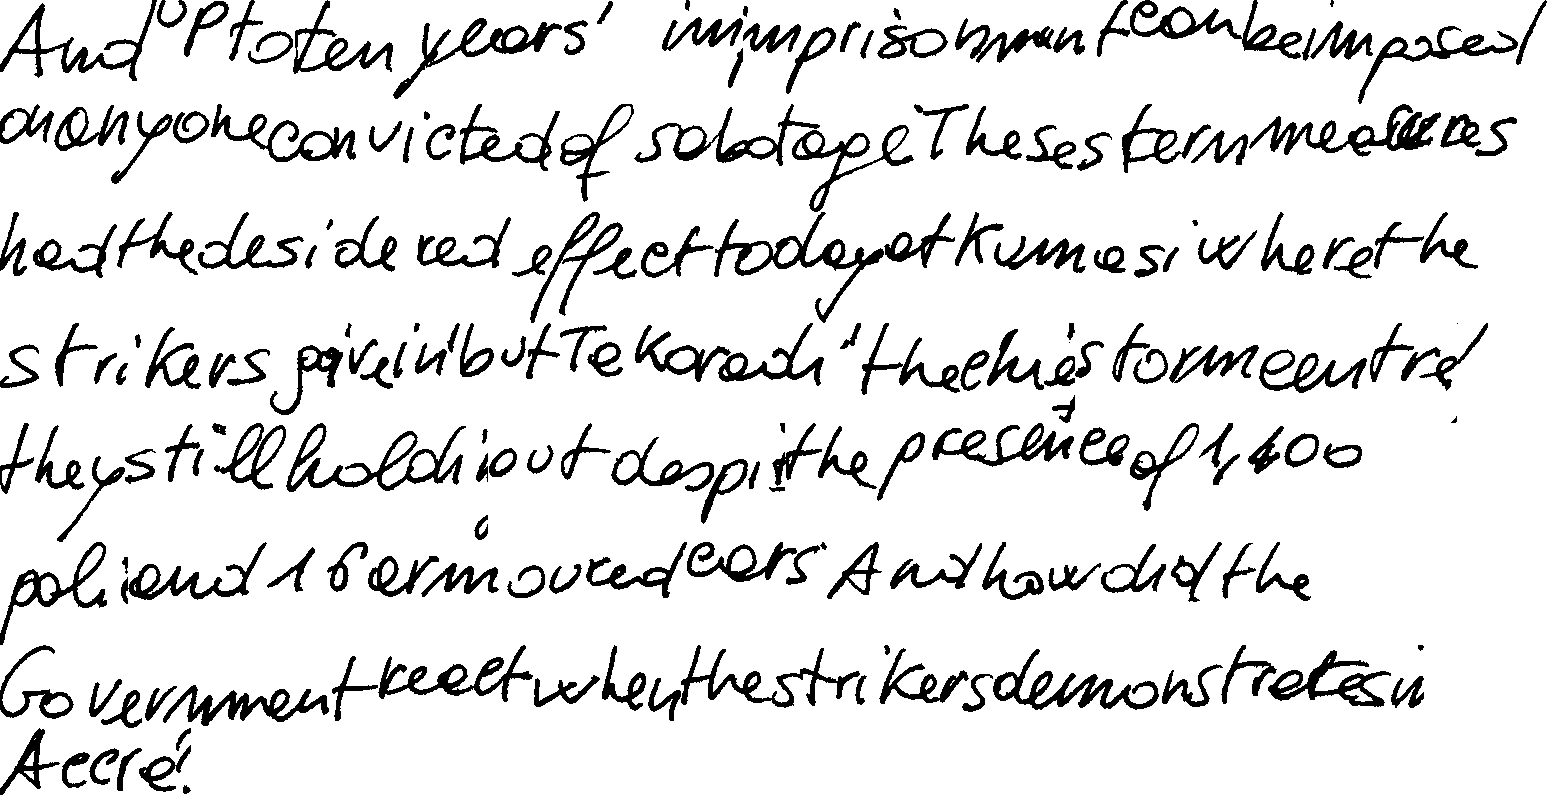 And up to ten years' imprisonment can be imposed
on anyone convicted of sabotage These stern measures
had the desidered effect today at Kumasi where the
strikers give in but Tekoradi the storm centre
they still hold out despit the presence of 1,400
poli and 16 armoured cars And how did the
Government react when the strikers demonstrates in
Accra!